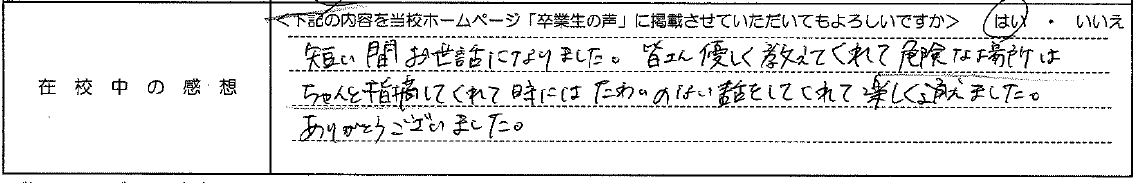 <下記の内容を当校ホームページ「卒業生の声」に掲載させていただいてもよろしいですか> はい ・ いいえ
在校中の感想
短い間お世話になりました。皆さん優しく教えてくれて危険な場所は
ちゃんと指摘してくれて時にはたわいのない話をしてくれて楽しく通えました。
ありがとうございました。